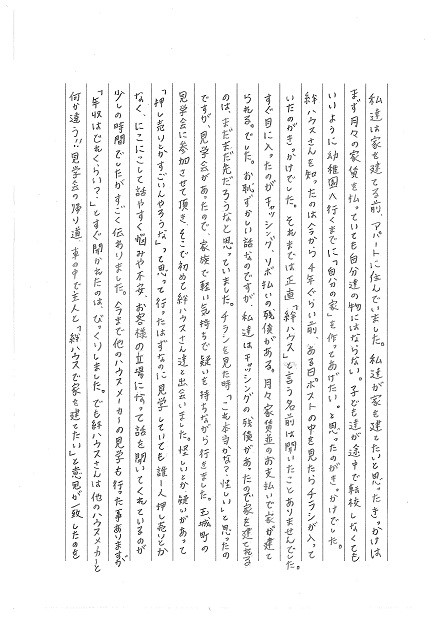 私達は家を建てる前、アパートに住んでいました。私達が家を建てたいと思ったきっかけは
まず月々の家賃を払っていても自分達の物にはならない。子ども達が途中で転校しなくても
いいように幼稚園へ行くまでに「自分の家」を作ってあげたい。と思ったのがきっかけでした。
絆ハウスさんを知ったのは今から4年ぐらい前、ある日ポストの中を見たらチラシが入って
いたのがきっかけでした。それまでは正直「絆ハウス」と言う名前は聞いたことありませんでした。
すぐ目に入ったのがキャッシング、リボ払いの残債がある。月々家賃並のお支払いで家が建て
られる。でした。お恥ずかしい話なのですが、私達はキャッシングの残債があったので家を建てれる
のは、まだまだ先だろうなと思っていました。チラシを見た時「これ本当かな?怪しい」と思ったの
ですが、見学会があったので、家族で軽い気持ちで疑いを持ちながら行きました。玉城町の
見学会に参加させて頂き、そこで初めて絆ハウスさん達と出会いました。怪しいとか疑いがあって
「押し売りとかすごいんやろうな」って思って行ったはずなのに見学していても誰一人押し売りとか
なく、にこにこして話やすく悩みや不安、お客様の立場になって話を聞いてくれているのが
少しの時間でしたがすごく伝わりました。今まで他のハウスメーカーの見学も行った事ありますが
「年収はどれくらい?」とすぐ聞かれたのは、びっくりしました。でも絆ハウスさんは他のハウスメーカーと
何か違う!!見学会の帰り道、車の中で主人と「絆ハウスで家を建てたい」と意見が一致したのを